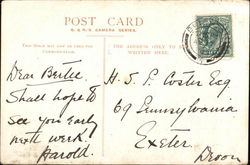 POST CARD
G. & N.'S CAMERA SERIES.
THIS SPACE MAY BE USED FOR
COMMUNICATION.
THE ADDRESS ONLY TO BE
WRITTEN HERE.
Dear Bertie.
Shall hope to
see you early
next week.
Harold.
H. J. P. Coster Esq
69 Pennsylvania
Exeter.
Devon